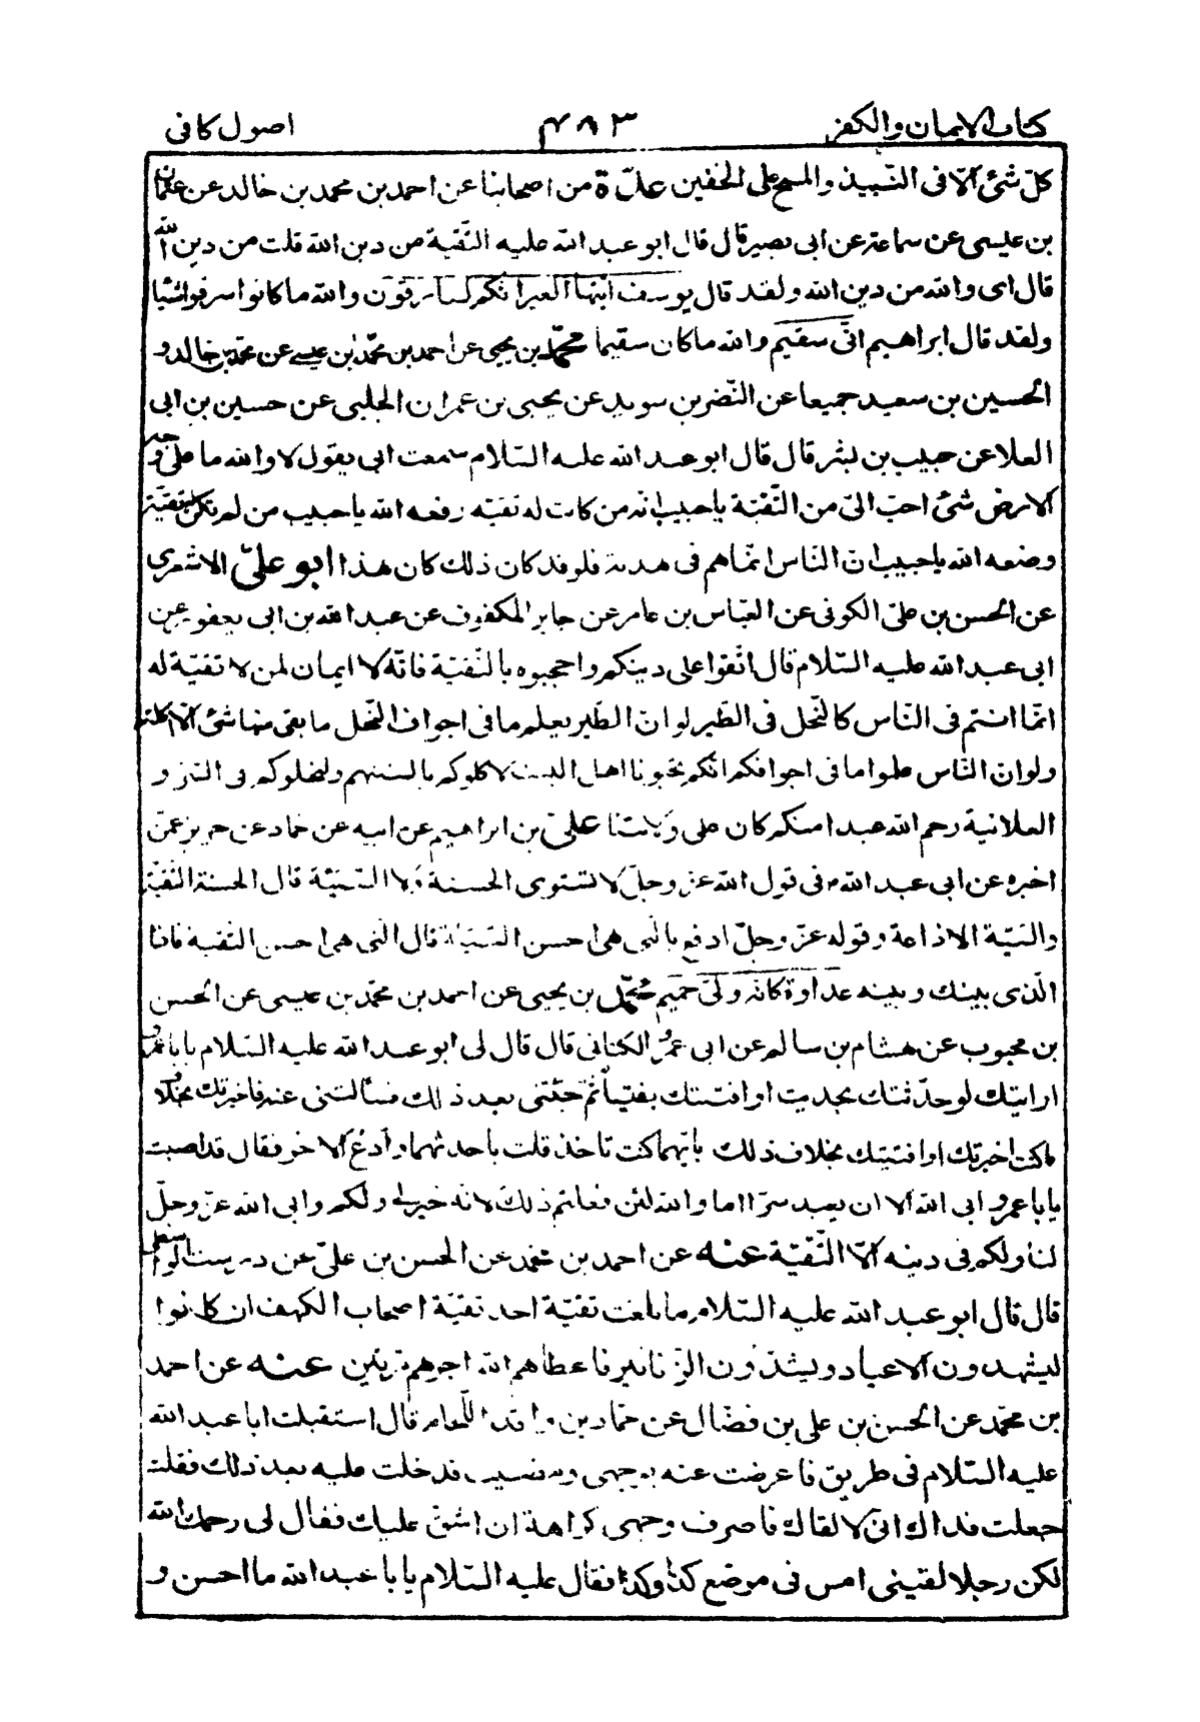 كتاب الايمان والكفر ٤٨٣ اصول كافى
كلّ شئ الّا فى النّبيذ والمسح على الخفين عدّة من اصحابنا عن احمد بن محمد بن خالد عن عثمان
بن عليسى عن سماعة عن ابى بصير قال قال ابو عبد الله عليه التّقية من دين الله قلت من دين الله
قال اى والله من دين الله ولقد قال يوسف ايتها العير انكم لسارقون والله ما كانوا سرقوا شيئا
ولقد قال ابراهيم انّى سقيم والله ما كان سقيما محمّد بن يحيى عن احمد بن محمّد بن عيسى عن محمّد بن خالد و
الحسين بن سعيد جميعا عن النّضر بن سويد عن يحيى بن عمران الحلبى عن حسين بن ابى
العلا عن حبيب بن بشر قال قال ابو عبد الله عليه السّلام سمعت ابى يقول لا والله ما على وجه
الارض شئ احبّ الىّ من التّقيّة يا حبيب انّه من كانت له تقيّه رفعه الله يا حبيب من لم تكن له تقيّة
وضعه الله يا حبيب انّ النّاس انّما هم فى هدنة فلو قد كان ذلك كان هذا ابو علىّ الاشعرى
عن الحسن بن علىّ الكوفى عن العبّاس بن عامر عن جابر المكفوف عن عبد الله بن ابى يعفور عن
ابى عبد الله عليه السّلام قال اتّقوا على دينكم واحجبوه بالتّقيّة فانّه لا ايمان لمن لا تقيّة له
انّما انتم فى النّاس كالنّحل فى الطّير لو انّ الطّير يعلم ما فى اجواف النّحل ما بقى منها شئ الّا اكلته
ولو انّ النّاس علموا ما فى اجوافكم انّكم تحبّونا اهل البيت لاكلوكم بالسنتهم ولنحلوكم فى السّرّ و
العلانية رحم الله عبدا منكم كان على ولايتنا علىّ بن ابراهيم عن ابيه عن حماد عن حريز عمّن
اخبره عن ابى عبد الله ع فى قول الله عزّ وجلّ لا تستوى الحسنة ولا السّيّئة قال الحسنة التّقيّة
والسّيّة الاذاعة وقوله عزّ وجلّ ادفع بالّتى هى احسن السّيّئة قال الّتى هى احسن التّقية فاذا
الّذى بينك وبينه عداوة كانّه ولىّ حميم محمّد بن يحيى عن احمد بن محمّد بن عيسى عن الحسن
بن محبوب عن هشام بن سالم عن ابى عمرو الكنانى قال قال لى ابو عبد الله عليه السّلام يا با عمرو
ارايتك لو حدّثتك بحديث او افتيتك بفتيا ثم جئتنى بعد ذلك فسألتنى عنه فاخبرتك بخلاف
ما كنت اخبرتك او افتيتك بخلاف ذلك بايّهما كنت تاخذ قلت باحدثهما وادع الاخر فقال قد اصبت
يا با عمرو ابى الله الا ان يعبد سرّا اما والله لئن فعلتم ذلك لانّه خير لى ولكم وابى الله عزّ وجلّ
لنا ولكم فى دينه الّا التّقيّة عنه عن احمد بن محمد عن الحسن بن علىّ عن درست الواسطى
قال قال ابو عبد الله عليه السّلام ما بلغت تقيّة احد تقيّة اصحاب الكهف ان كانوا
ليشهدون الاعياد ويشدّون الزّنانير فاعطاهم الله اجرهم مرّتين عنه عن احمد
بن محمّد عن الحسن بن على بن فضّال عن حمّاد بن واقد اللّحام قال استقبلت ابا عبد الله
عليه السّلام فى طريق فاعرضت عنه بوجهى ومضيت فدخلت عليه بعد ذلك فقلت
جعلت فداك انّى لالقاك فاصرف وجهى كراهة ان اشقّ عليك فقال لى رحمك الله
لكن رجلا لقينى امس فى موضع كذا وكذا فقال عليه السّلام يا با عبد الله ما احسن و